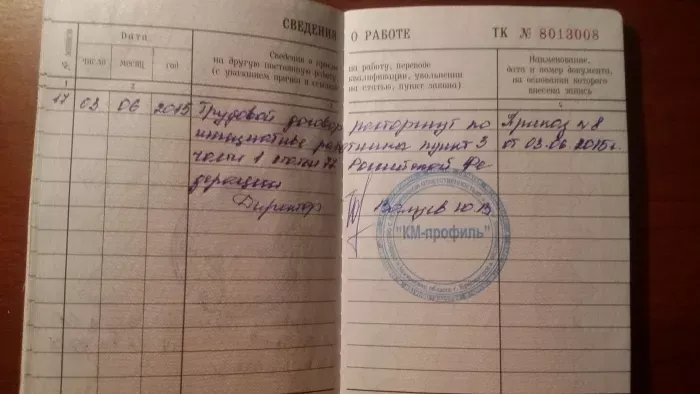 СВЕДЕНИЯ О РАБОТЕ ТК № 8013008
Дата
число месяц год
Сведения о приеме на работу, переводе
на другую постоянную работу, квалификации, увольнении
(с указанием причин и ссылкой на статью, пункт закона)
Наименование,
дата и номер документа,
на основании которого
внесена запись
1 2 3 4
17 03 06 2015 Трудовой договор расторгнут по Приказ №8
инициативе работника пункт 3 от 03.06.2015г.
части 1 статьи 77 Российской Фе
дерации
Директор
"КМ-профиль"